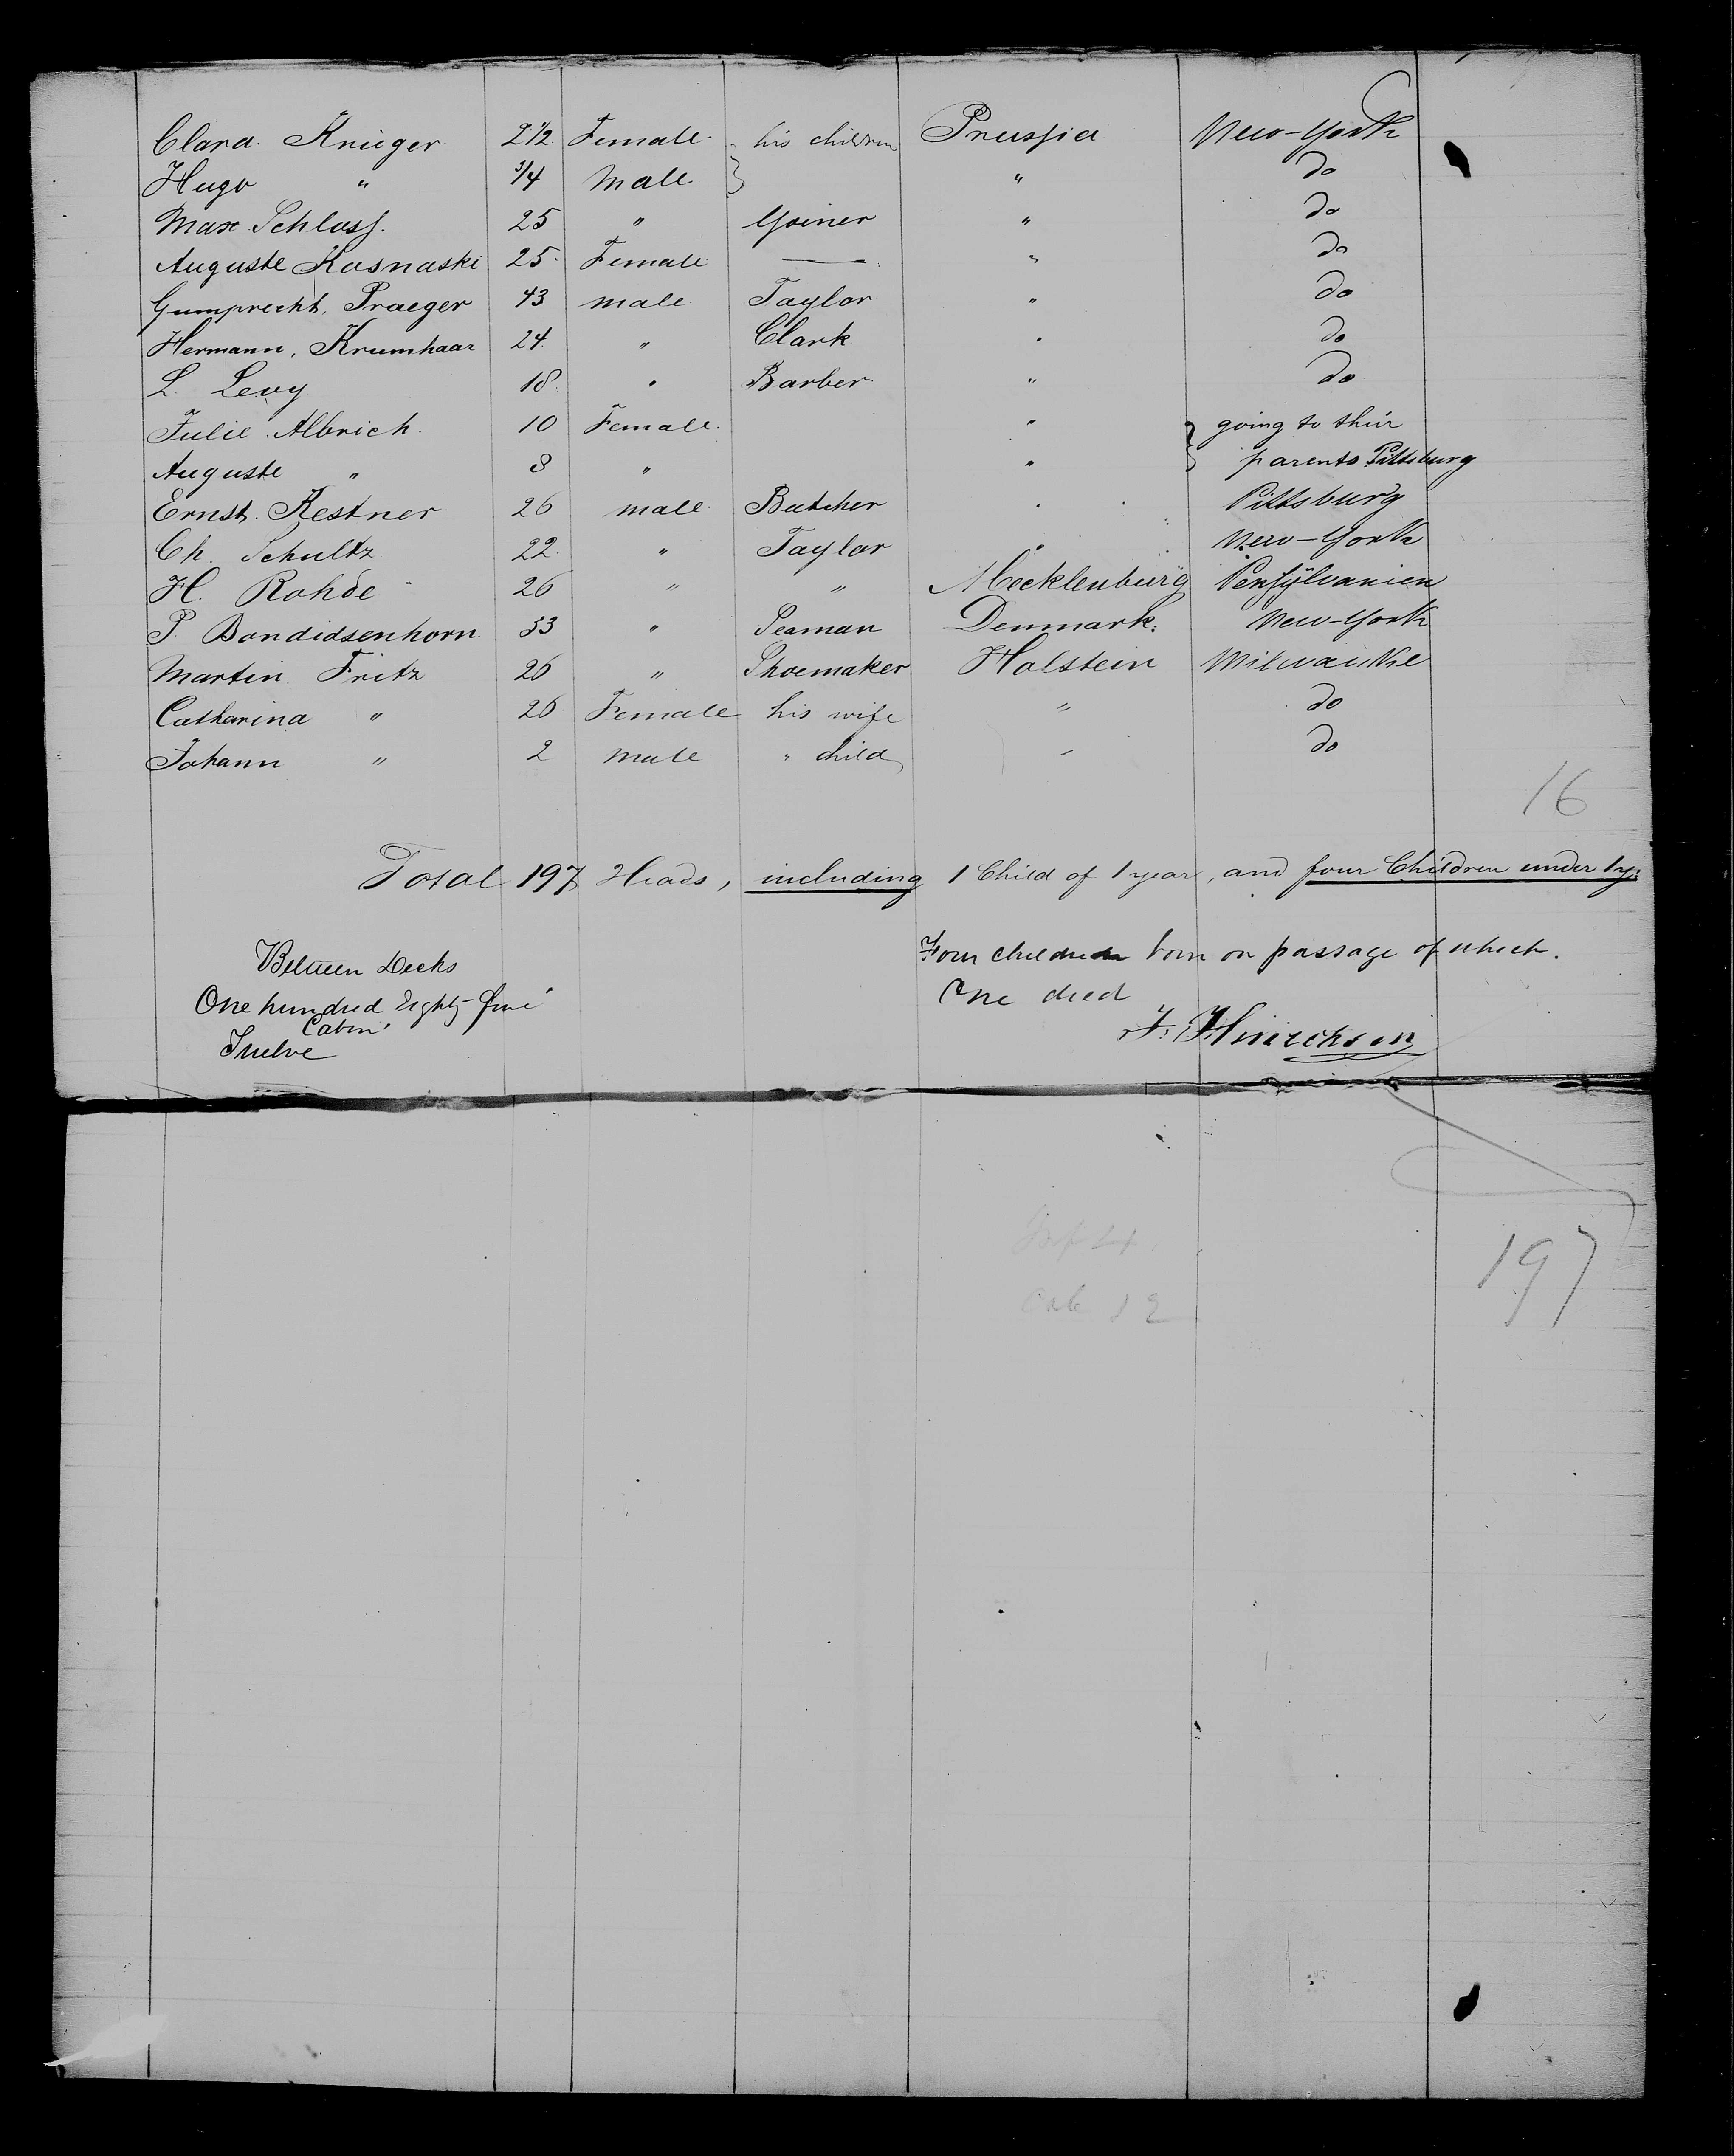 Clara Krieger 2 1/2 Female his children Prussia New-York
Hugo " 3/4 Male " do
Max Schloss. 25 " Joiner " do
Auguste Kosnaski 25 Female — " do
Gumprecht, Praeger 43 male Taylor " do
Hermann, Krumhaar 24 " Clark " do
L. Levy 18 " Barber " do
Julie Albrich 10 Female. " going to their
Auguste " 8 " " parents Pittsburg
Ernst. Kestner 26 male Butcher " Pittsburg
Ch. Schultz 22 " Taylor " New-York
H. Rohde 26 " " Mecklenburg Pensylvanien
P. Bondidsenhorn 33 " Seaman Denmark. New-York
Martin Fritz 26 " Shoemaker Holstein Milwaukie
Catharina " 26 Female his wife " do
Johann " 2 male " child " do
16
Total 197 Heads, including 1 Child of 1 year, and four Children under 1 y:
Between Decks
One hundred Eighty-five
Cabin
Twelve
Four children born on passage of which.
One died
Hinrichsen
197
Inf 4
Cab 12